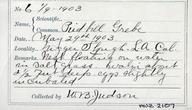 No 6/9-1903
Scientific,
Common, Piedbill Grebe
Date, May 29th 1903
Locality, Nigger Slough, L.A. Cal
Remarks, Nest floating on water
in salt grass water about
2 1/2 feet deep eggs slightly
incubated
Collector W.B. Judson
WBJ 2107